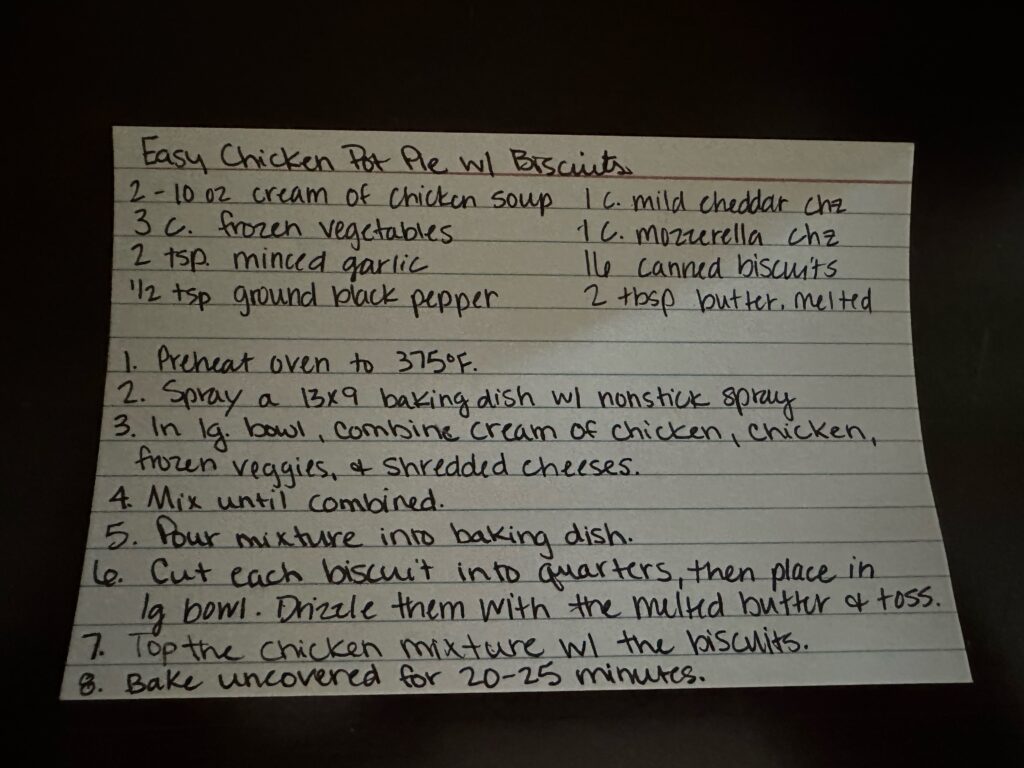 Easy Chicken Pot Pie w/ Biscuits
2 - 10 oz cream of chicken soup 1 c. mild cheddar chz
3 c. frozen vegetables 1 c. mozzerella chz
2 tsp. minced garlic 16 canned biscuits
1/2 tsp ground black pepper 2 tbsp butter, melted
1. Preheat oven to 375°F.
2. Spray a 13x9 baking dish w/ nonstick spray
3. In lg. bowl, combine cream of chicken, chicken,
frozen veggies, & shredded cheeses.
4. Mix until combined.
5. Pour mixture into baking dish.
6. Cut each biscuit into quarters, then place in
lg bowl. Drizzle them with the melted butter & toss.
7. Top the chicken mixture w/ the biscuits.
8. Bake uncovered for 20-25 minutes.